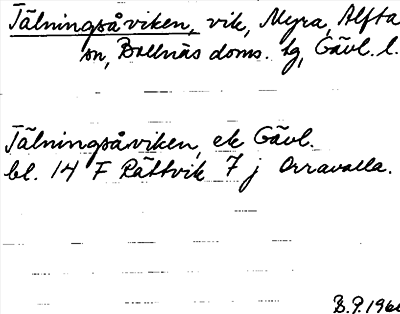 Tälningsåviken, vik, Myra, Alfta
sn, Bollnäs doms. tg, Gävl. l.
Tälningsåviken, ek Gävl.
bl. 14 F Rättvik 7 j Orravalla.
B.P.1960